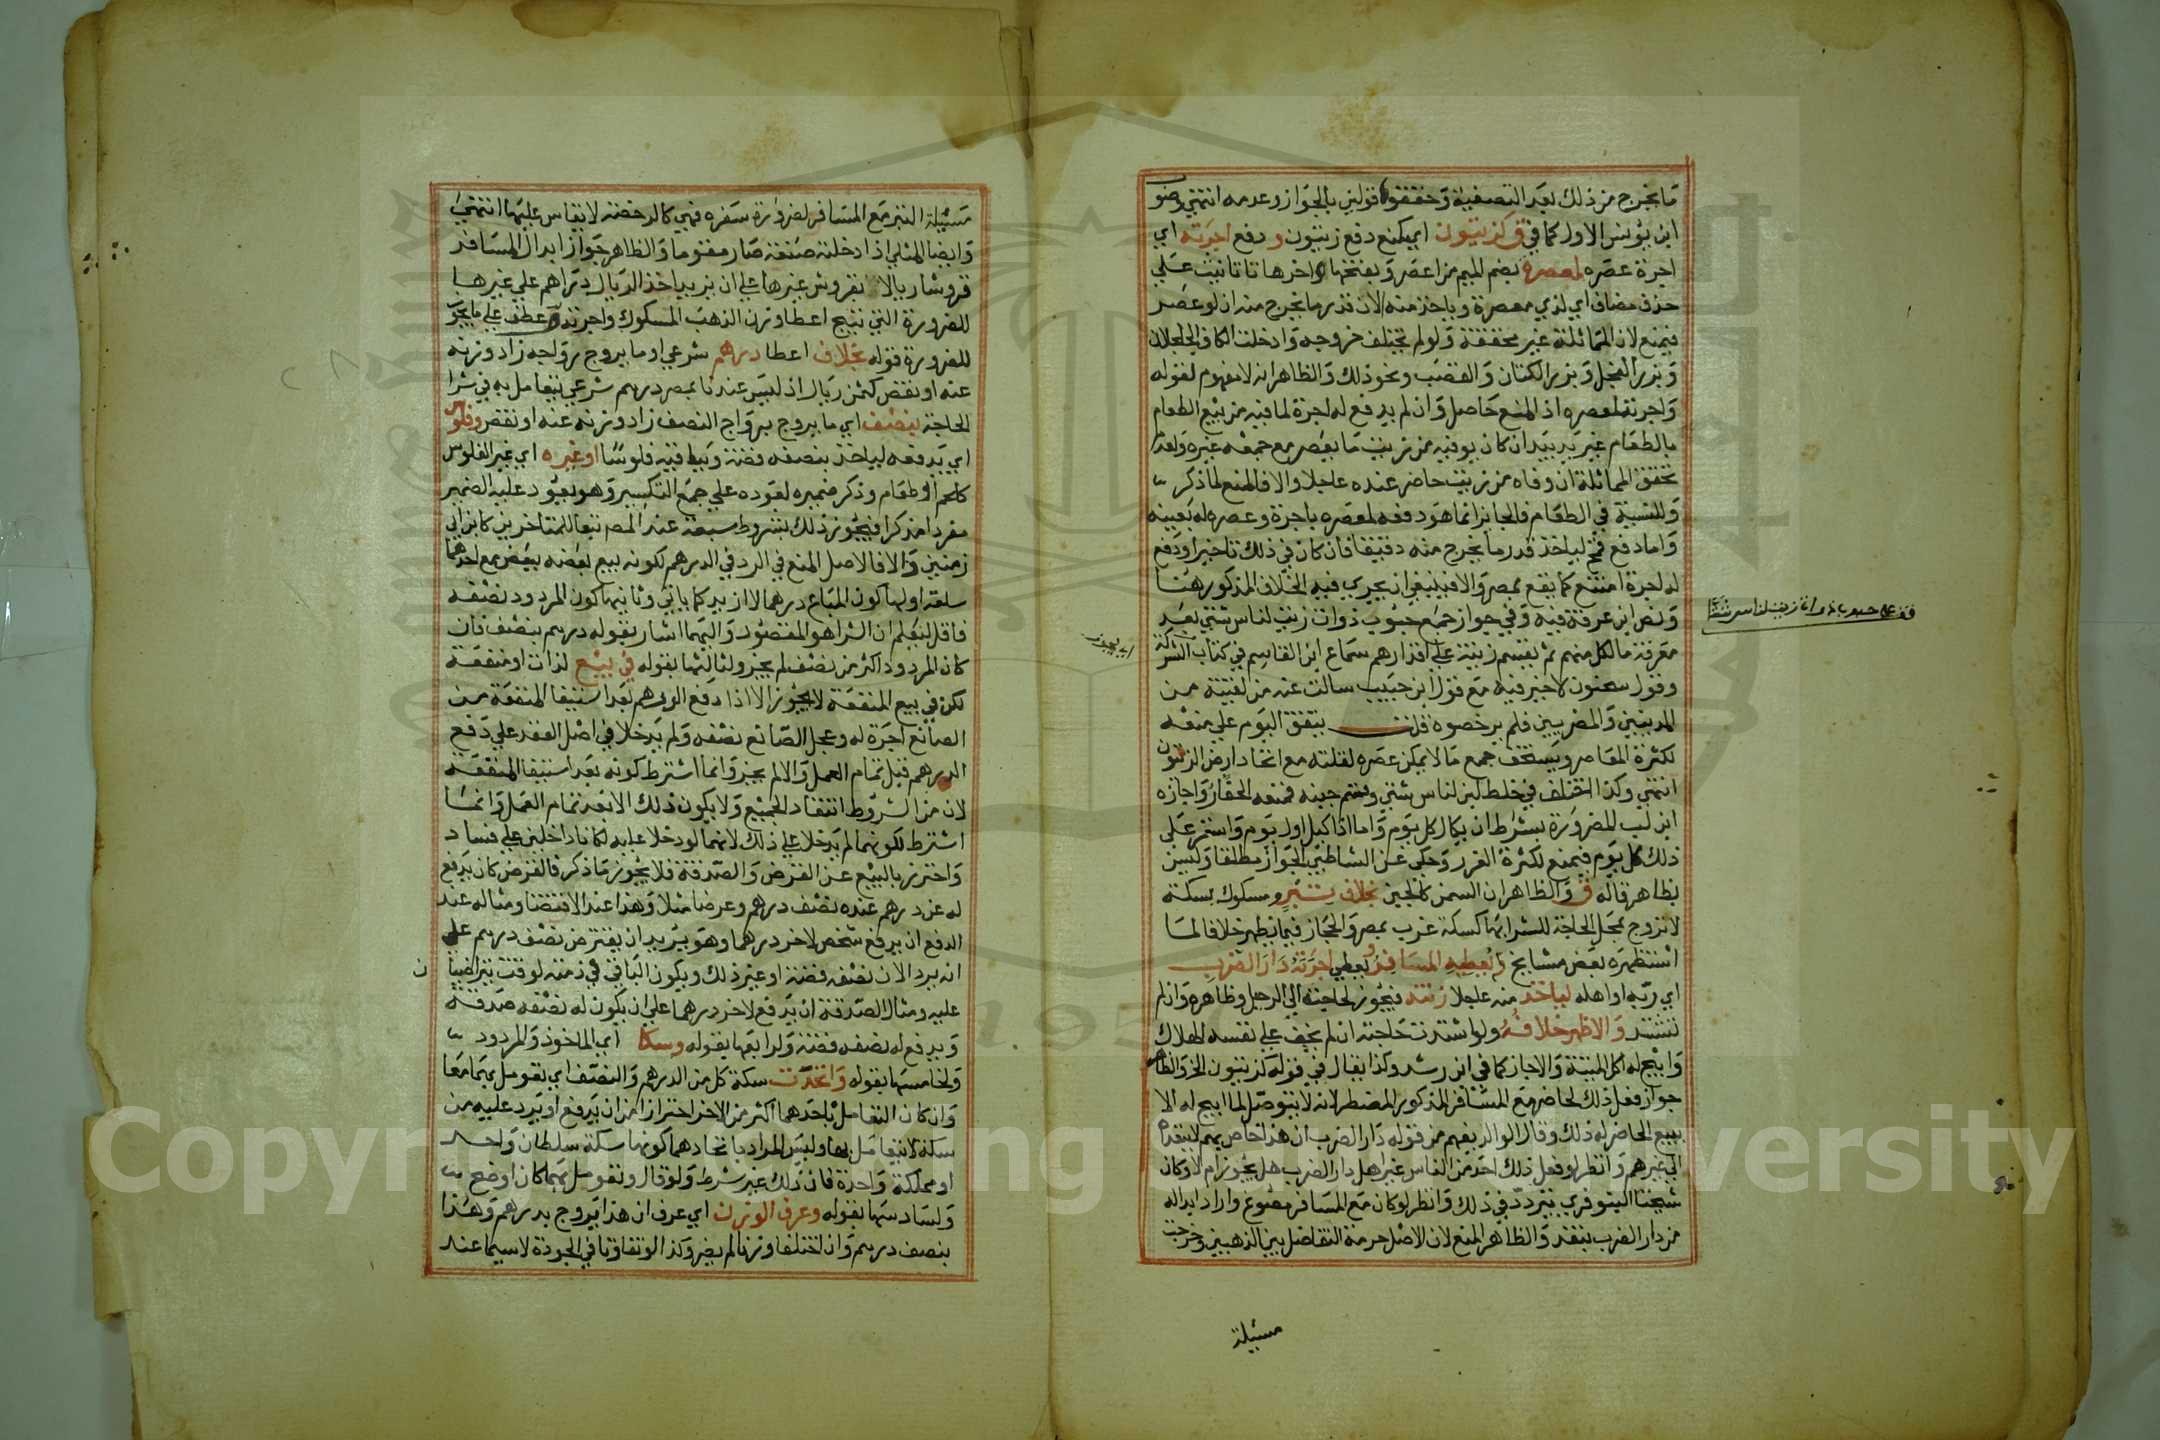 ما يخرج من ذلك بعد التصفية وحققوا قولين بالجواز وعدمه انتهى وصو
ابن يونس الاول كما في ق كزيتون اي يمنع دفع زيتون و دفع اجرته اي
اجرة عصره لمعصره بضم الميم من اعصر وبفتحها واخرها تا تانيث على
حذف مضاف اي لذي معصرة وياخذ منه الان قدر ما يخرج منه ان لو عصر
فيمنع لان المماثلة غير محققة ولو لم يختلف خروجه وادخلت الكاف الجلجلان
وبزر الفجل وبزر الكتان والقصب ونحو ذلك والظاهر انه لا مفهوم لقوله
واجرته لمعصره اذ المنع حاصل وان لم يدفع له اجرة لما فيه من بيع الطعام
بالطعام غير يد بيد ان كان يوفيه من زيت ما يعصر مع جمعه غيره ولعدم
تحقق المماثلة ان وفاه من زيت حاضر عنده عاجلا والا فالمنع لما ذكر
وللنسية في الطعام فالجايز انما هو دفعه لمعصره باجرة وعصره له بعينه
واما دفع قمح لياخذ قدر ما يخرج منه دقيقا فان كان في ذلك تاخير او دفع
له اجرة امتنع كما يقع بمصر والا فينبغي ان يجري فيه الخلاف المذكور هنا
ونص ابن عرفة فيه وفي جواز جمع حبوب ذوات زيت لناس شتي بعد
معرفة ما لكل منهم ثم يقسم زيته على اقدارهم سماع ابن القاسم في كتاب الشركة
وقول سحنون لا خير فيه مع قول ابن حبيب سالت عنه من لقيته من
المدنيين والمصريين فلم يرخصوه قلت يتفق اليوم على منعه
لكثرة المعاصر ويستخف جمع ما لا يمكن عصره لقلته مع اتحاد ارض الزيتون
انتهي وكذا اختلف في خلط لبن لناس شتي وقسم جبنه فمنعه الحفار واجازه
ابن لب للضرورة بشرط ان يكال كل يوم واما اذا كيل اول يوم واستمر على
ذلك كل يوم فيمنع لكثرة الغرر وحكى عن الشاطبي الجواز مطلقا وليس
بظاهر قاله ق والظاهر ان السمن كالجبن بخلاف تبر ومسكوك بسكة
لا تروج بمحل الحاجة للشرا بها كسكة غرب بمصر والحجاز فيما يظهر خلافا لما
استظهره بعض مشايخ يعطيه المسافر ويعطي اجرته دار الضرب
اي ربه او اهله لياخذ منه عاجلا زنته فيجوز لحاجته الي الرحيل وظاهره وان لم
تشتد والاظهر خلافه ولو اشتدت حاجته ان لم يخف على نفسه الهلاك
وابيح له اكل الميتة والا جاز كما في ابن رشد وكذا يقال في قوله كزيتون الخ والظاهر
جواز فعل ذلك لحاضر مع المسافر المذكور المضطر لانه لا يتوصل لما ابيح له الا
ببيع الحاضر له ذلك وقال الوالد يفهم من قوله دار الضرب ان هذا خاص بهم لا يتعداه
الى غيرهم وانظر لو فعل ذلك احد من الناس غير اهل دار الضرب هل يجوز ام لا وكان
شيخنا البنوفري يتردد في ذلك وانظر لو كان مع المسافر مصوغ واراد ابداله
من دار الضرب بنقد والظاهر المنع لان الاصل حرمة التفاضل بين الذهبين وخرجت
مسئلة
مسئلة التبر مع المسافر لضرورة سفره فهي كالرخصة لا يقاس عليها انتهى
وايضا المثلي اذا دخلته صنعة صار مقوما والظاهر جواز ابدال المسافر
قروشا ريالا بقروش غيرها على ان يزيد ياخذ الريال دراهم على غيرها
للضرورة التي تبيح اعطا وزن الذهب المسكوك واجرته وعطف على ما يجوز
للضرورة قوله بخلاف اعطا درهم شرعي او ما يروج رواجه زاد وزنه
عنه او نقص كثمن ريال اذ ليس عندنا بمصر درهم شرعي يتعامل به في شرا
الحاجة بنصف اي ما يروج برواج النصف زاد وزنه عنه او نقص وفلوس
اي يدفعه لياخذ بنصفه فضة وبباقيه فلوسا او غيره اي غير الفلوس
كلحم او طعام وذكر ضميره لعوده على جمع التكسير وهو يعود عليه الضمير
مفردا مذكرا فيجوز ذلك بشروط سبعة عند المص تبعا للمتاخرين كابن ابي
زمنين والا فالاصل المنع في الرد في الدرهم لكونه بيع بفضة بفضة مع احدهما
سلعة اولها كون المباع درهما لا ازيد كما ياتي وثانيها كون المردود نصفه
فاقل ليعلم ان الشرا هو المقصود واليهما اشار بقوله درهم بنصف فان
كان المردود اكثر من نصف لم يجز ولثالثها بقوله في بيع لذات او منفعة
لكن في بيع المنفعة لا يجوز الا اذا دفع الدرهم بعد استيفا المنفعة من
الصانع اجرة له وعجل الصانع نصفه ولم يدخلا في اصل العقد على دفع
الدرهم قبل تمام العمل والا لم يجز وانما اشترط كونه بعد استيفا المنفعة
لان من الشروط انتقاد الجميع ولا يكون ذلك الا بعد تمام العمل وانما
اشترط لكونهما لم يدخلا على ذلك لانهما لو دخلا عليه لكانا داخلين على فساد
واحترز بالبيع عن القرض والصدقة فلا يجوز ما ذكر فالقرض كان يدفع
له عن درهم عنده نصف درهم وعرضا مثلا وهذا عند الاقتضا ومثاله عند
الدفع ان يدفع شخص لاخر درهما وهو يريد ان يقترض نصف درهم على
انه يرد الان نصفه فضة او غير ذلك ويكون الباقي في ذمته لوقت يتراضيا
عليه ومثال الصدقة ان يدفع لاخر درهما على ان يكون له نصفه صدقة
ويدفع له نصفه فضة ولرابعها بقوله وسكا اي الماخوذ والمردود
ولخامسها بقوله واتحدت سكة كل من الدرهم والنصف اي تعومل بهما معا
وان كان التعامل باحدهما اكثر من الاخر احترازا من ان يدفع او يرد عليه من
سكة لا يتعامل بها وليس المراد باتحادهما كونهما سكة سلطان واحد
او مملكة واحدة فان ذلك غير شرط ولو قال وتعومل بهما كان اوضح
ولسادسها بقوله وعرف الوزن اي عرف ان هذا يروج بدرهم وهذا
بنصف درهم وان اختلفا وزنا لم يضر وكذا لو تفاوتا في الجودة لاسيما عند